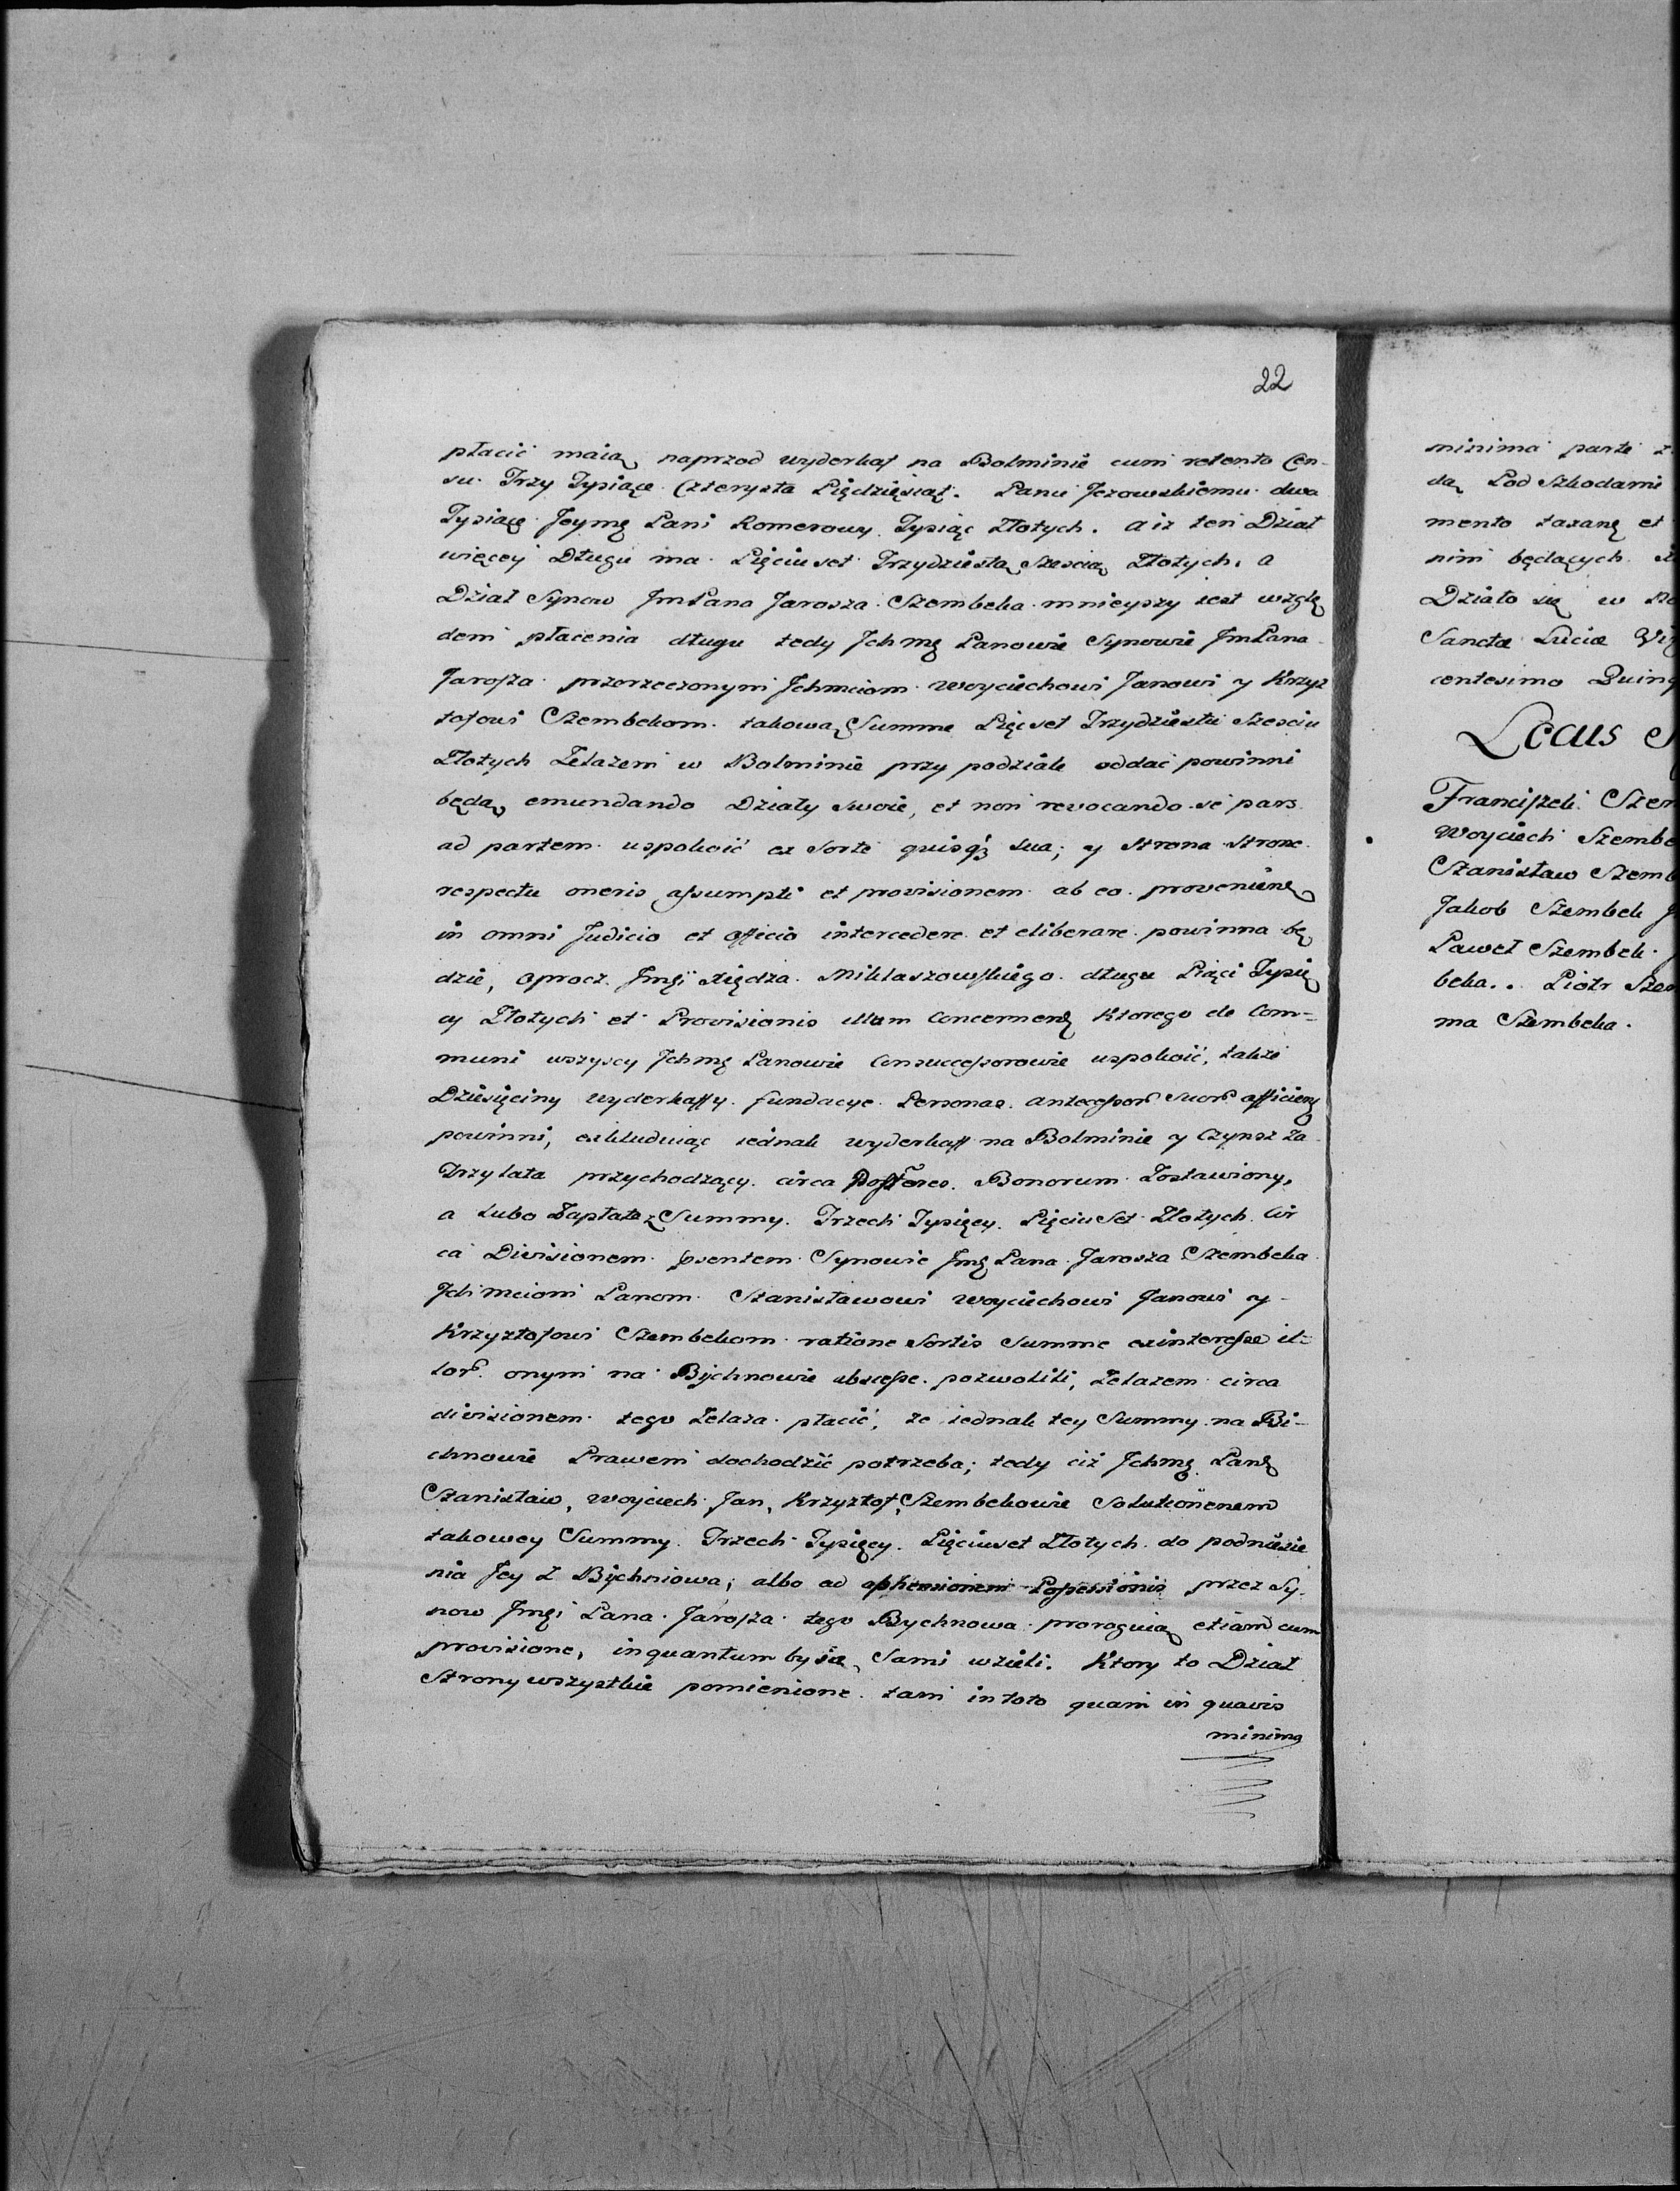 22
płacić maią naprzod wyderkaf na Bolminie cum retento Cen-
su Trzy Tysiące Czterysta Pięćdziesiąt. Panu Jezowskiemu dwa
Tysiące Jeymę Pani Romerowy Tysiąc Złotych. a iz ten Dział
więcey Długu ma Pięciuset Trzydziesta Szescią Złotych, a
Dział Synow JmPana Jarosza Szembeka mnieyszy iest wzglę
dem płacenia długu tedy Jchmę Panowie Synowie JmPana
Jarosza przerzeczonym Jchmciom Woyciechowi Janowi y Krzyz
tofowi Szembekom takową Summe Pięcset Trzydziestu Szesciu
Złotych Zelazem w Bolminie przy podziale oddac powinni
będą emundando Działy Swoie, et non revocando se pars
ad partem uspokoić ex Sorte quisq3 Sua; y Strona Strone
respectu oneris assumpti et provisionem ab eo provenienę
in omni Judicio et Officio intercedere et eliberare powinna bę
dzie, oprocz Jmęi Xiędza Miklaszowskiego długu Pięci Tysię
cy Złotych et Provisionis illam Concernenę Ktorego de Com=
muni wszyscy Jchmę Panowie Consuccessorowie uspokoić, także
Dziesięciny wyderkaffy fundacye Personas antecessor Suor afficienę
powinni, exkluduiąc iednak wyderkaff na Bolminie y Czynsz Za
Trzy lata przychodzący circa Possores Bonorum Zostawiony,
a lubo Zapłatę Summy Trzech Tysięcy Pięciuset Złotych Cir
ca Divisionem psentem Synowie Jmę Pana Jarosza Szembeka
Jchmciom Panom Stanisławowi Woyciechowi Janowi y
Krzysztofowi Szembekom ratione Sortis Summe ex interesse il=
lor onym na Bychnowie subsesse pozwolili, Zelazem circa
divisionem tego Zelaza płacić, ze iednak tey Summy na Bi-
chnowie Prawem dochodzić potrzeba; tedy ciż Jchmę Panę
Stanisław, Woyciech Jan, Krzysztof, Szembekowie Solutionem
takowey Summy Trzech Tysięcy Pięciuset Złotych do podniesie
nia Jey z Bychniowa; albo ad aphensionem Possessionis przez Sy-
now Jmęi Pana Jarosza tego Bychnowa proroguią etiam cum
provisione, inquantum by ią Sami wzieli. Ktory to Dział
Strony wszystkie pomienione tam in toto quam in quavis
minima
minima parte
dą Pod Szkodami
mento taxanę et
nim będących
Działo się w
Sancta Lucia
centesimo
Locus
Franciszek
Woyciech
Stanisław
Jakob Szembek
Paweł Szembek
beka.. Piotr
ma Szembeka.